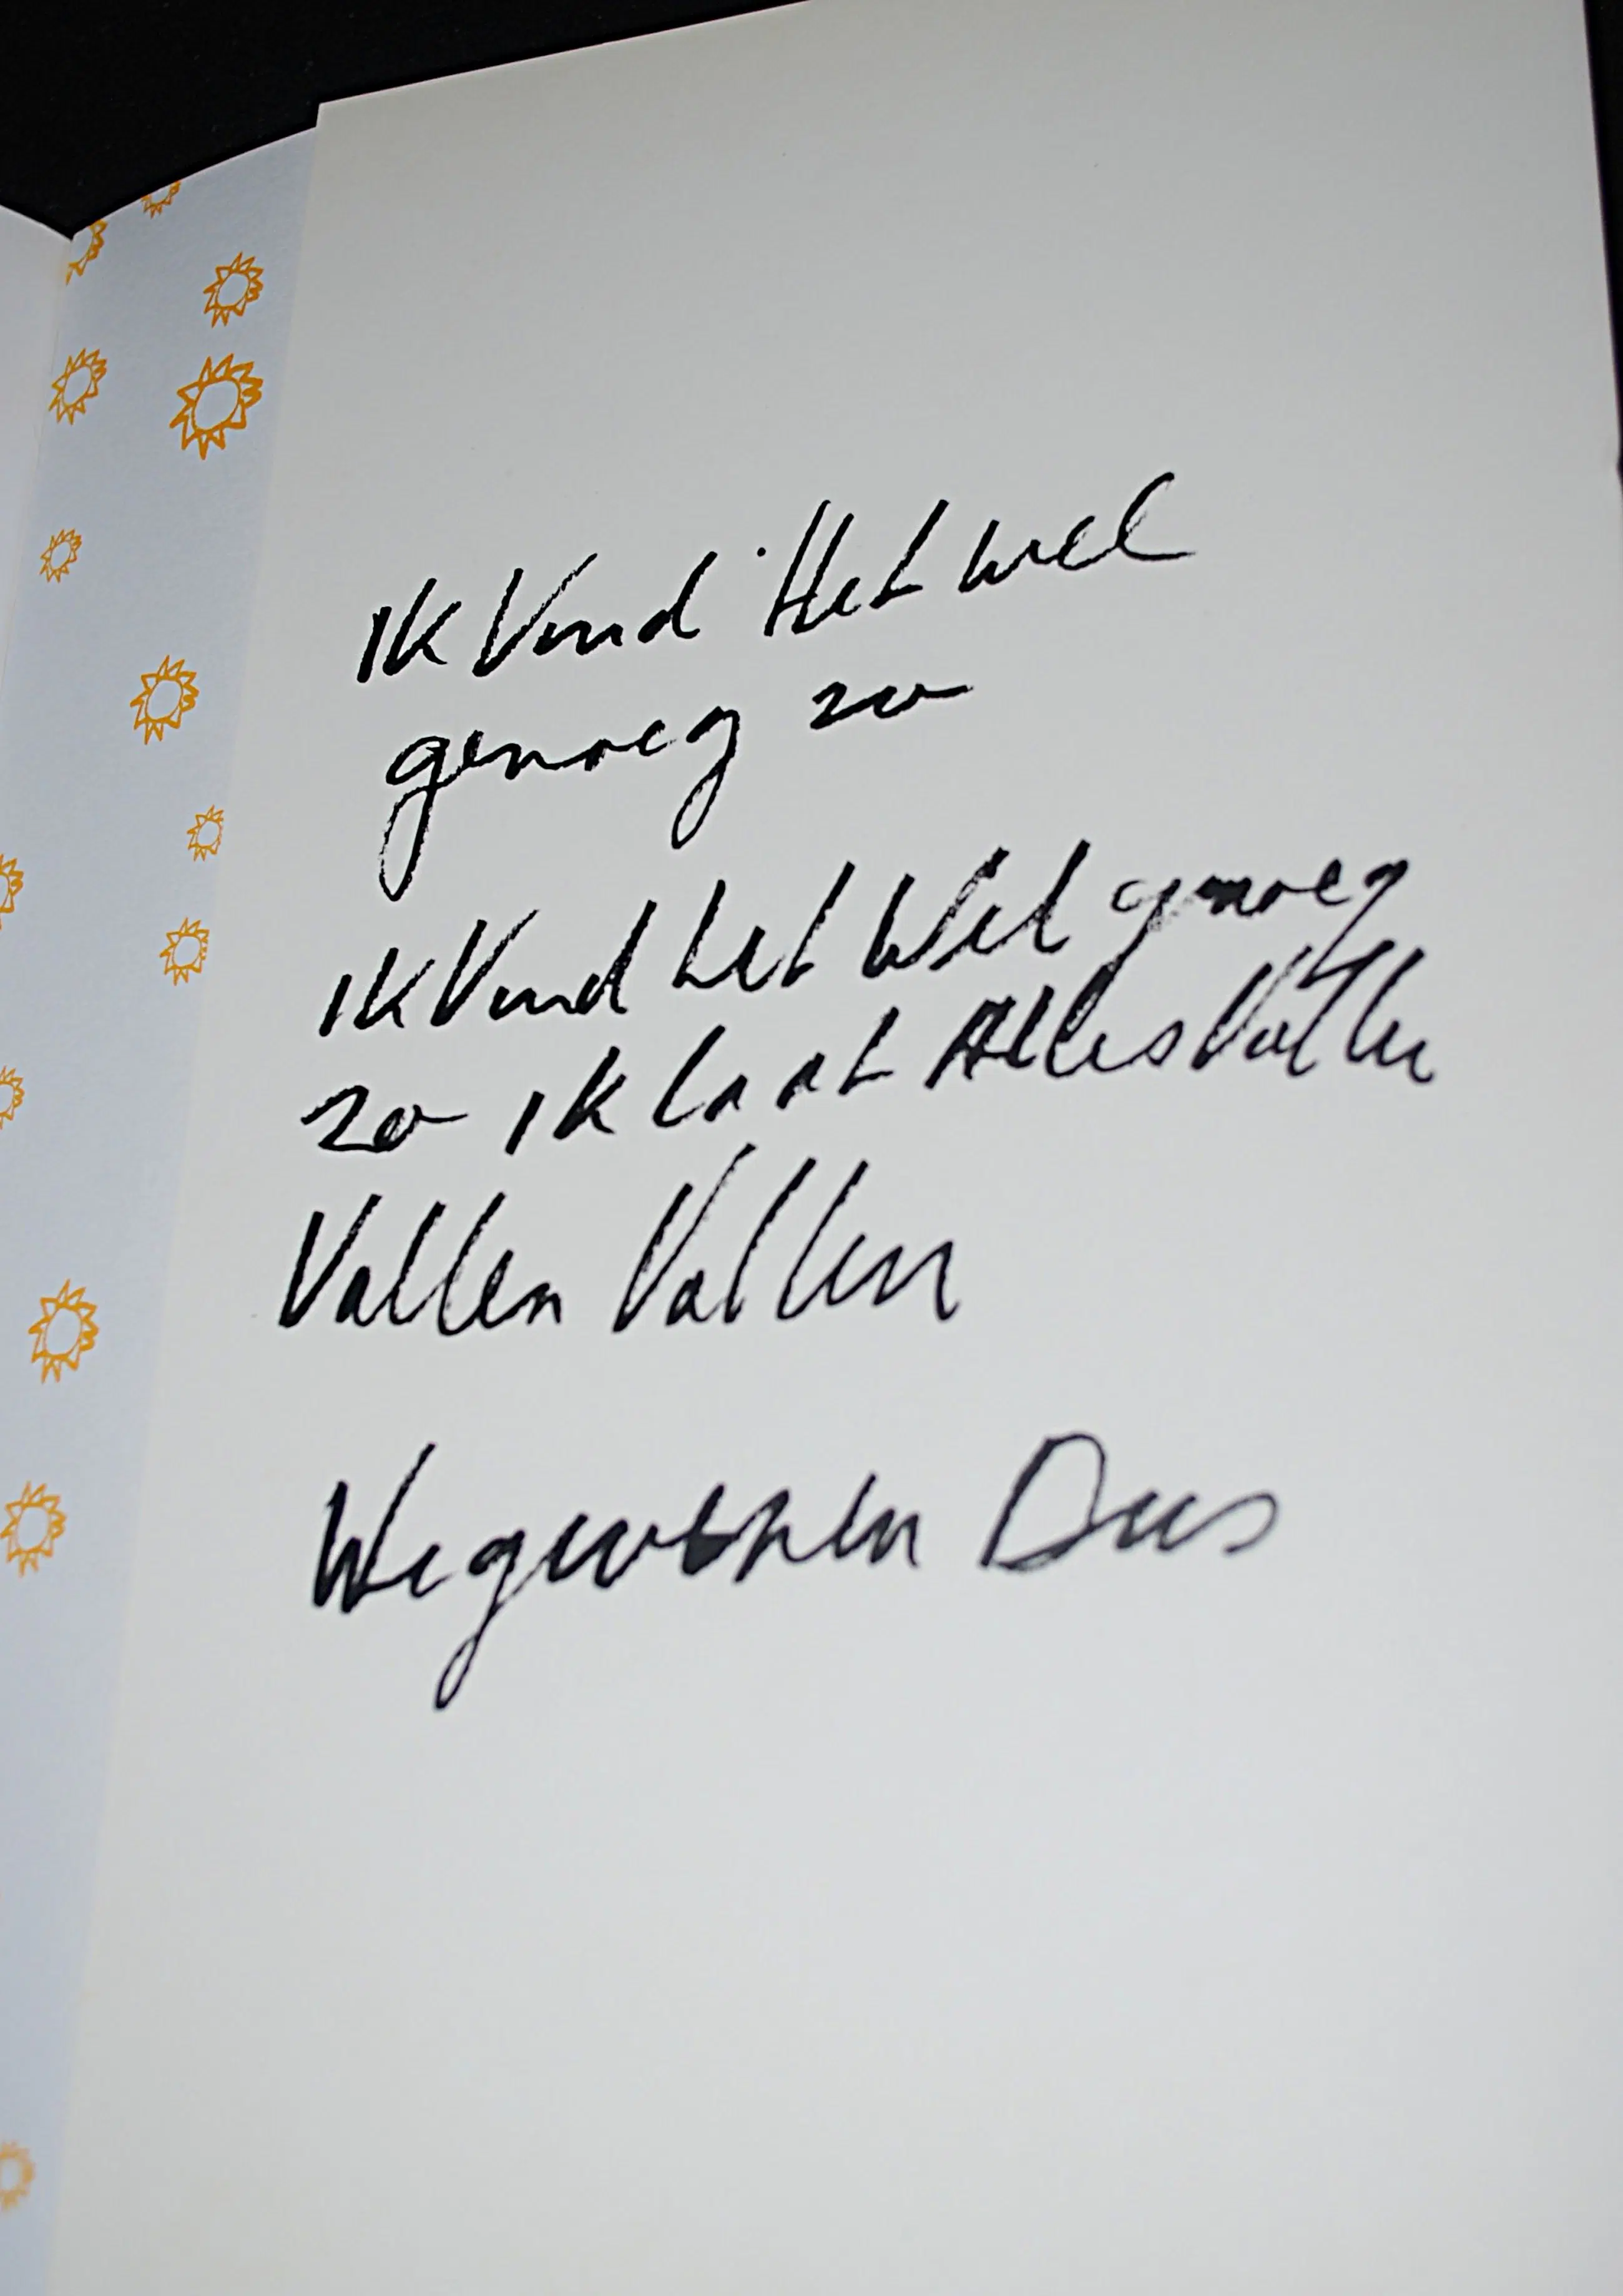 Ik Vind Het wel
genoeg zo
Ik Vind het Wel genoeg
zo Ik laat Alles Vallen
Vallen Vallen
Dus